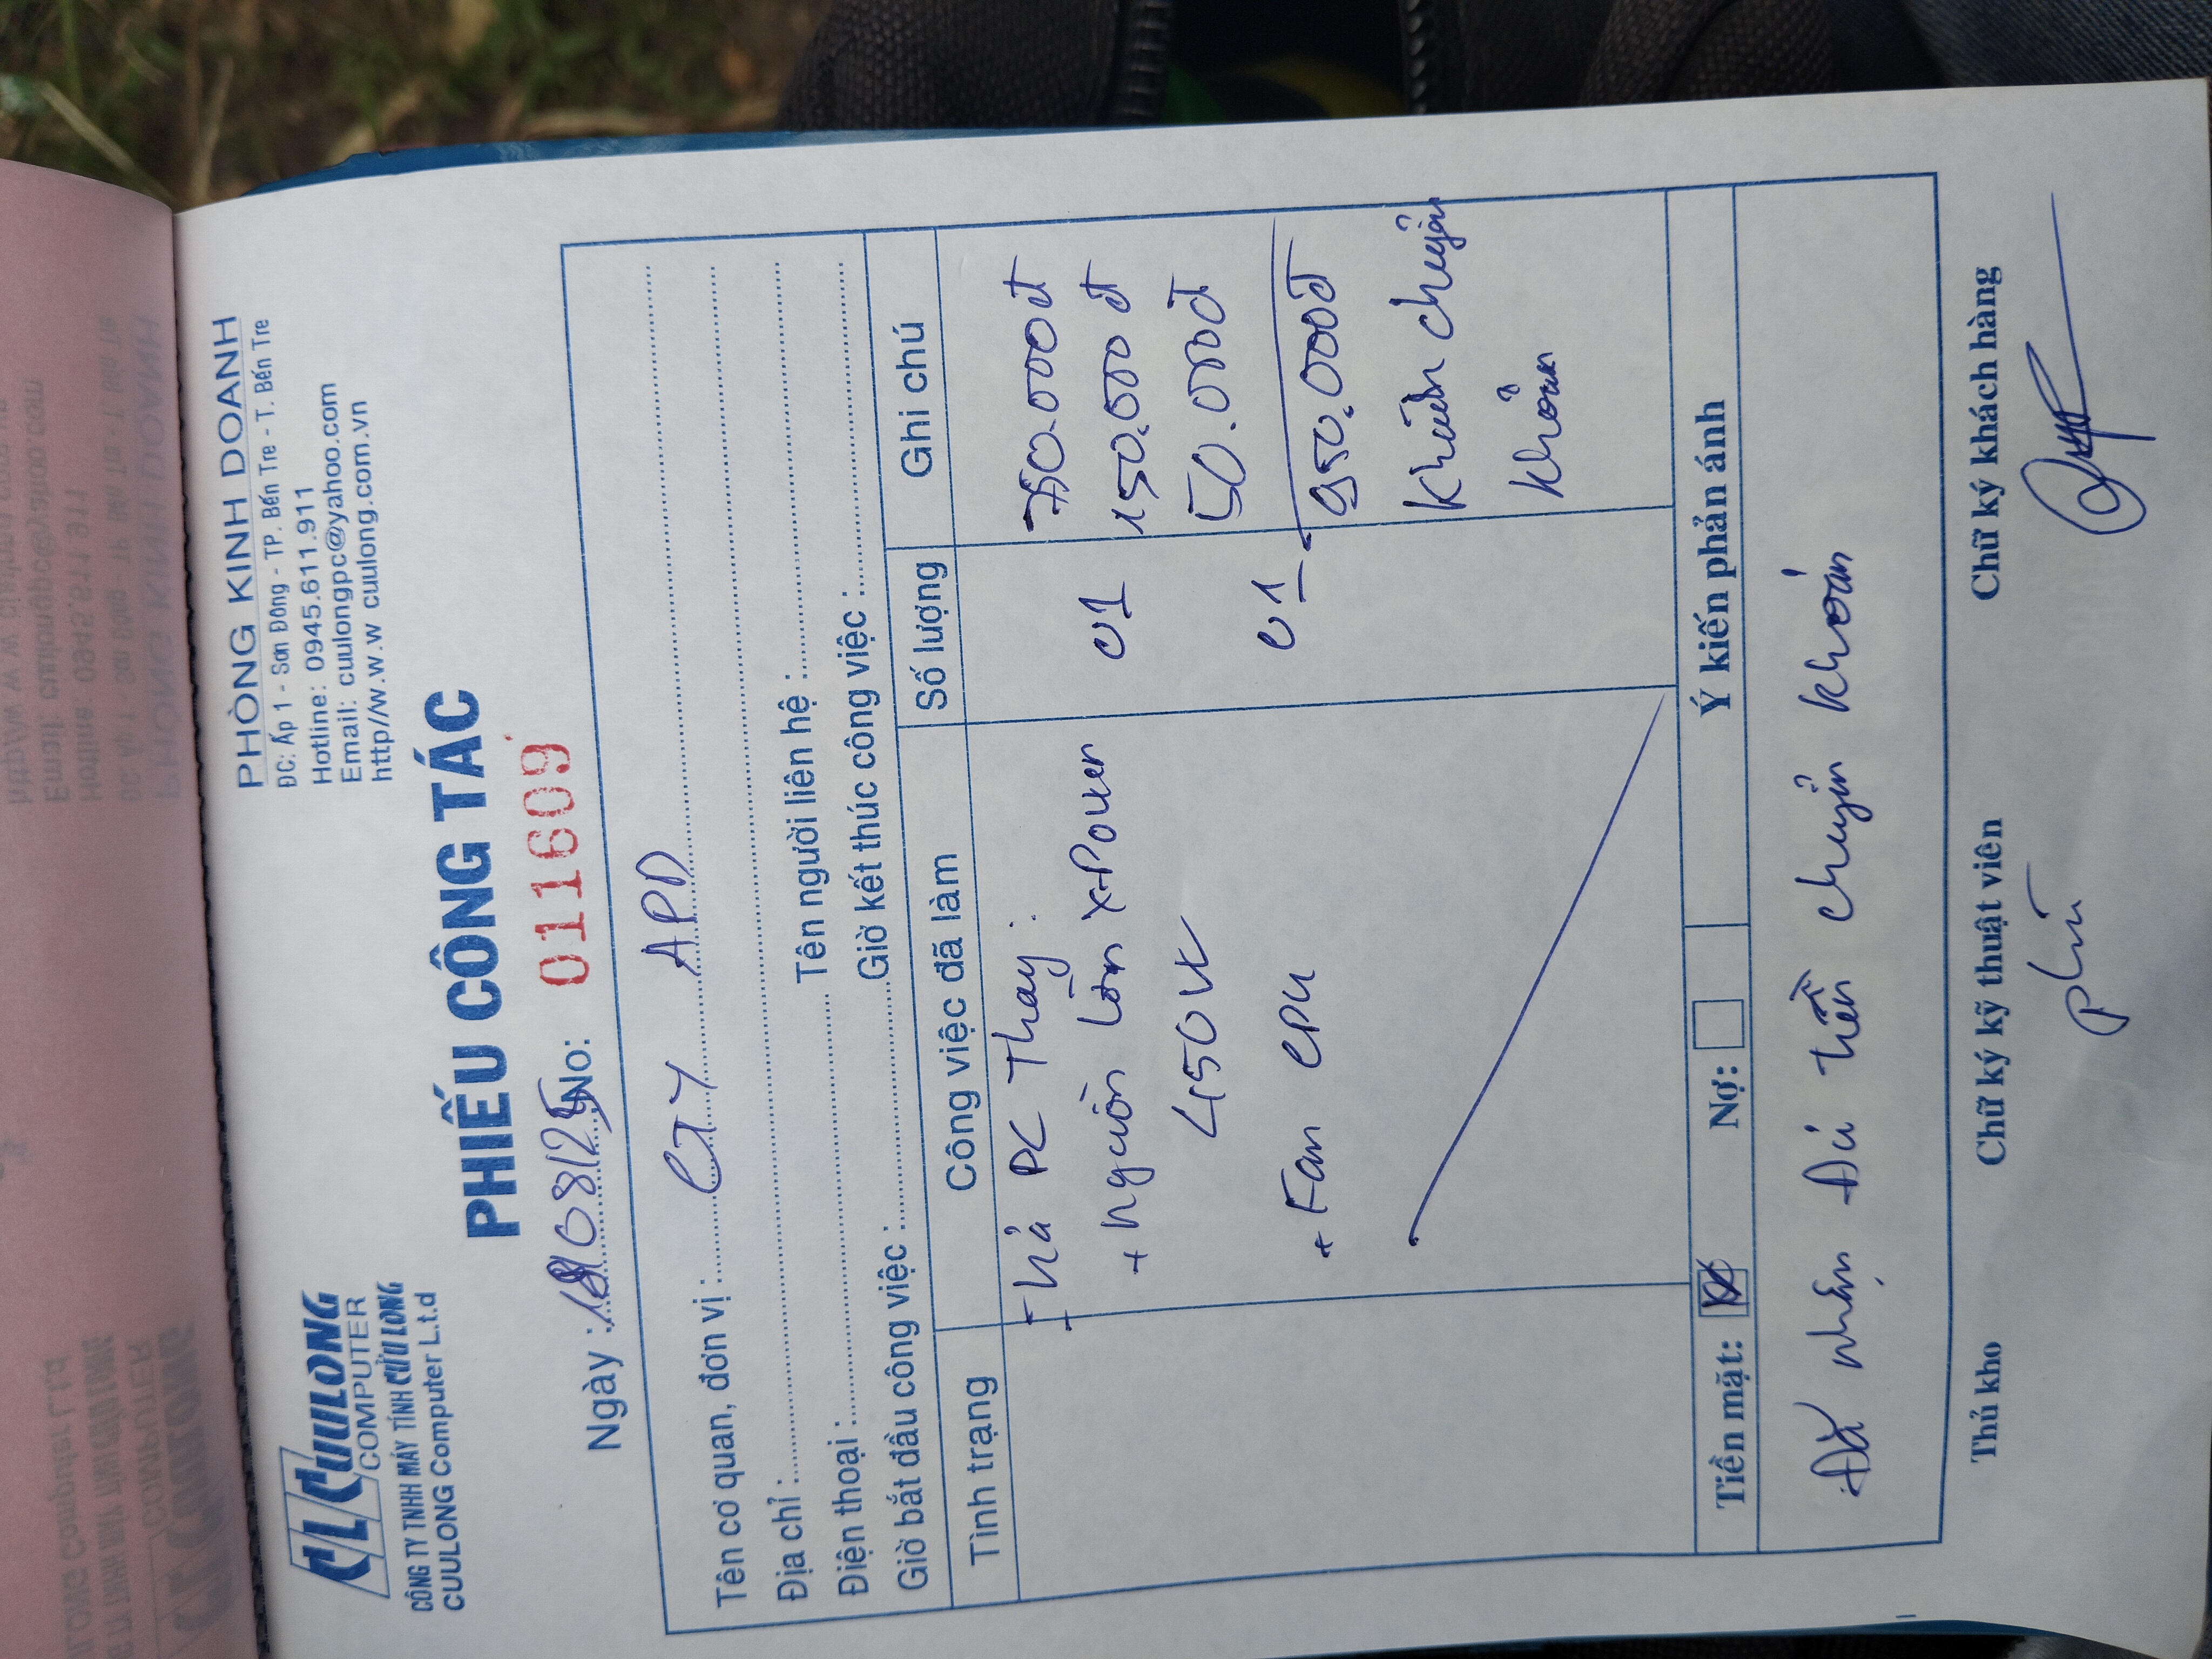 CL CUULONG
COMPUTER
CÔNG TY TNHH MÁY TÍNH CỬU LONG
CUULONG Computer L.t.d
PHÒNG KINH DOANH
ĐC: Ấp 1 - Sơn Đông - TP. Bến Tre - T. Bến Tre
Hotline: 0945.611.911
Email: cuulongpc@yahoo.com
http//w.w.w cuulong.com.vn
PHIẾU CÔNG TÁC
Ngày : 08/25 No: 011609
Tên cơ quan, đơn vị : CTY APD
Địa chỉ :
Điện thoại : Tên người liên hệ :
Giờ bắt đầu công việc : Giờ kết thúc công việc :
Tình trạng Công việc đã làm Số lượng Ghi chú
- trả PC Thay : 750.000đ
+ nguồn Lớn X-Power 01 150.000đ
450W 50.000đ
+ Fan CPU 01
950.000đ
Khách chuyển
khoản
Tiền mặt: Nợ: Ý kiến phản ánh
Đã nhận đủ tiền chuyển khoản
Thủ kho Chữ ký kỹ thuật viên Chữ ký khách hàng
phú